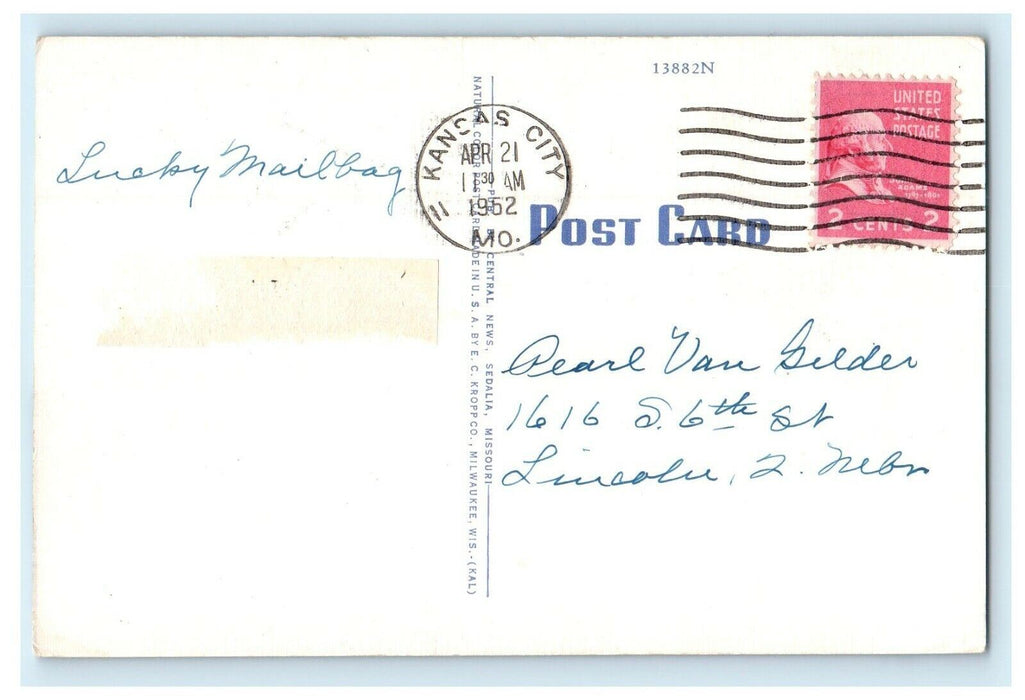 13882N
UNITED
STATES
POSTAGE
JOHN
ADAMS
2 CENTS 2
KANSAS CITY
APR 21
11 30 AM
1952
MO.
11
Lucky Mailbag
POST CARD
CENTRAL NEWS, SEDALIA, MISSOURI
NATURAL COLOR POST CARD MADE IN U. S. A. BY E. C. KROPP CO., MILWAUKEE, WIS.-(KAL)
Pearl Van Gilder
1616 S. 6th St
Lincoln, 2. Nebr